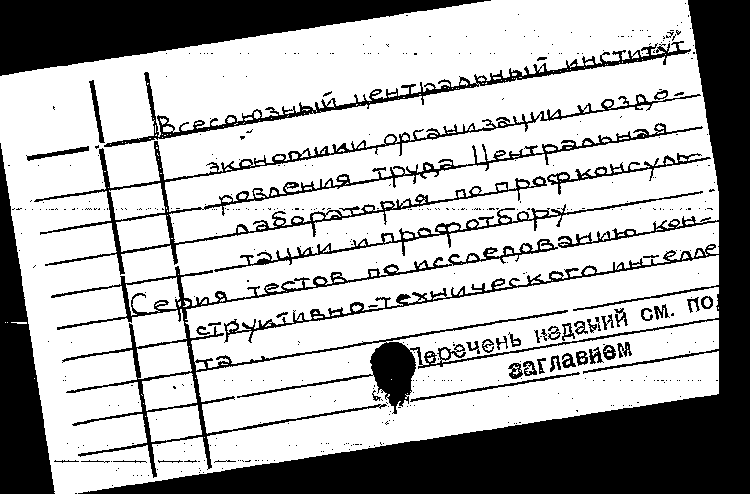 Всесоюзный центральный институт
экономики, организации и оздо-
ровления труда Центральная
лаборатория по профконсуль-
тации и профотбору
Серия тестов по исследованию кон-
структивно-технического интелле
та ..
Перечень изданий см. под
заглавием